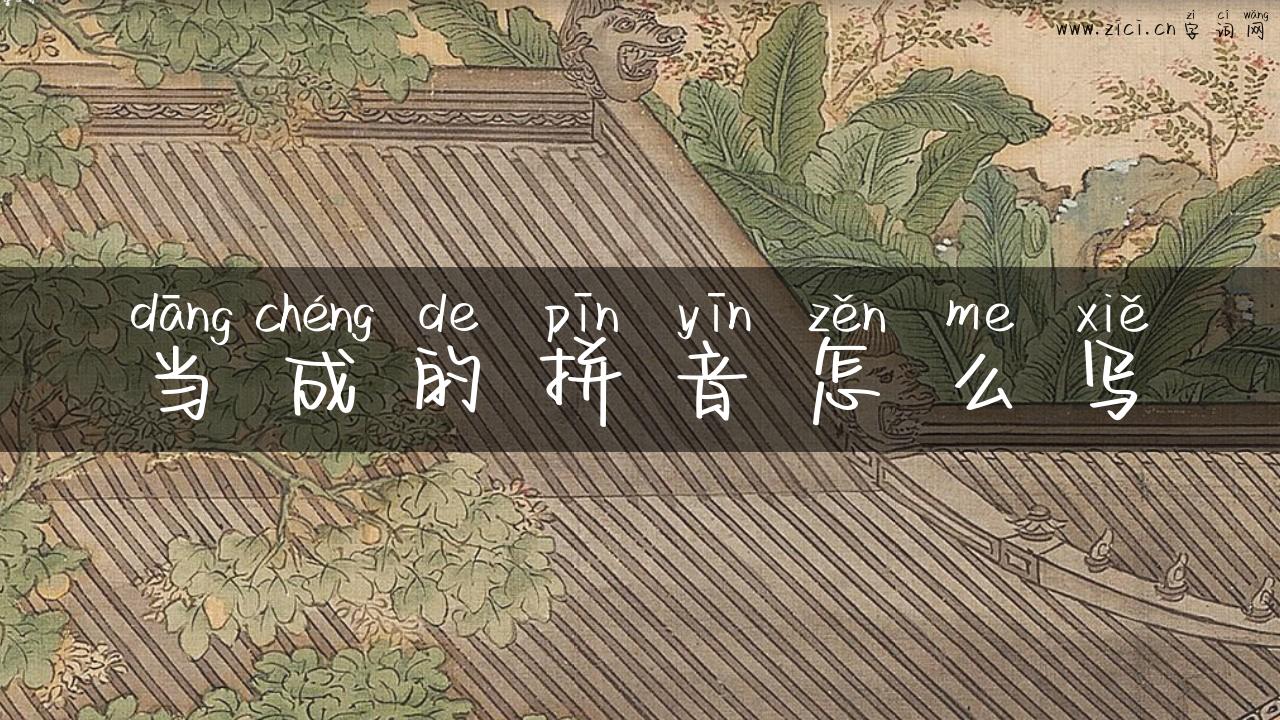 zì cí wǎng
www.zici.cn 字 词 网
dāng chéng de pīn yīn zěn me xiě
当 成 的 拼 音 怎 么 写